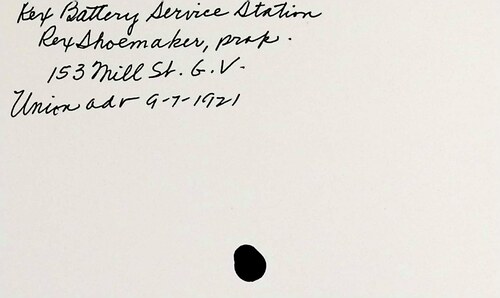 Rex Battery Service Station
Rex Shoemaker, prop.
153 Mill St. G.V.
Union adv 9-7-1921